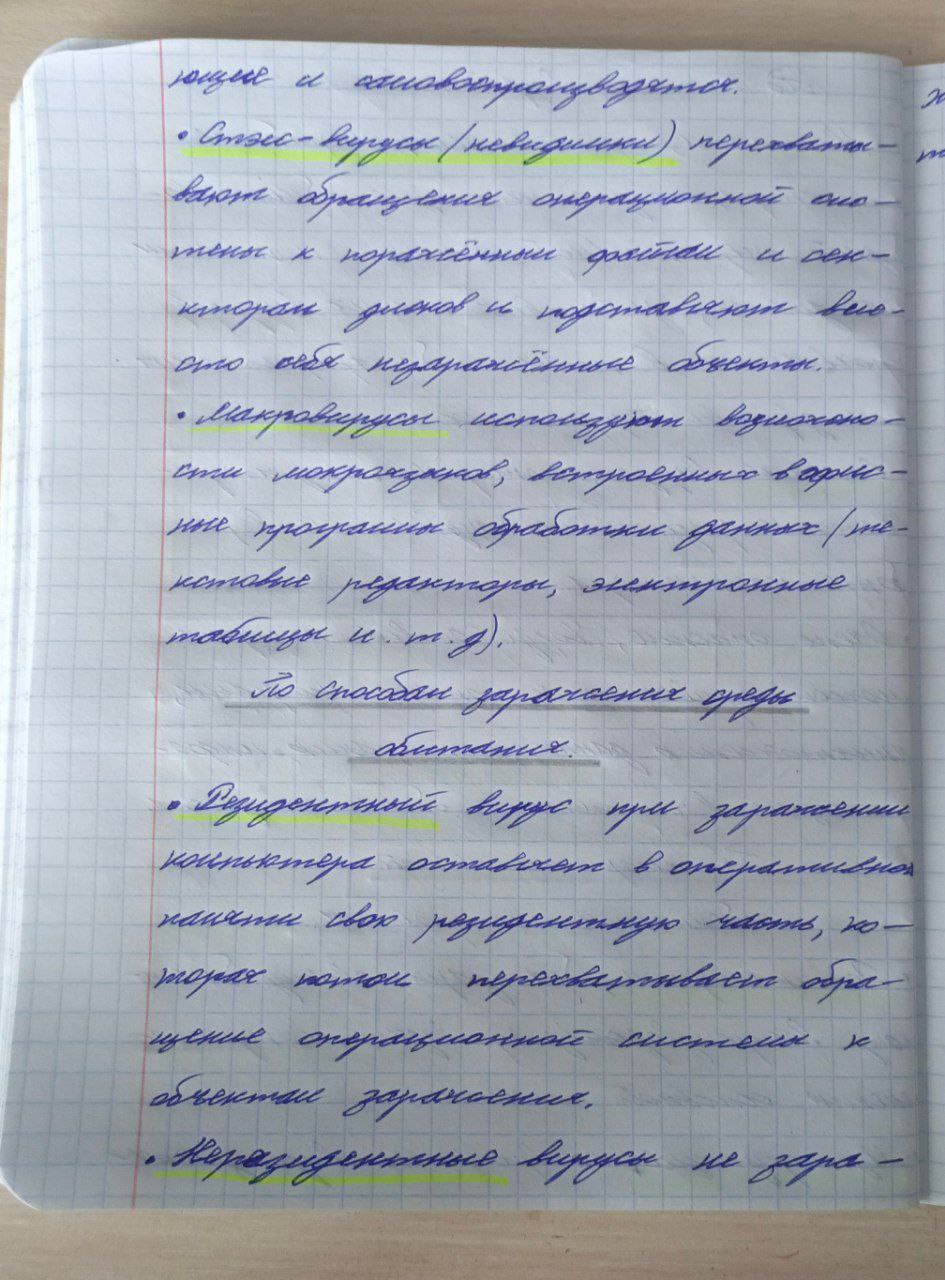 ющие и самовоспроизводятся.
• Стэлс-вирусы (невидимки) перехваты-
вают обращения операционной сис-
темы к поражённым файлам и сек-
кторам дисков и подставляют вме-
сто себя незаражённые объекты.
• Макровирусы используют возможно-
сти макроязыков, встроенных в офис-
ные программы обработки данных (те-
кстовые редакторы, электронные
таблицы и. т. д).
По способам заражения среды
обитания.
• Резидентный вирус при заражении
компьютера оставляет в оперативной
памяти свою резидентную часть, ко-
торая потом перехватывает обра-
щение операционной системы к
объектам заражения.
• Нерезидентные вирусы не зара-